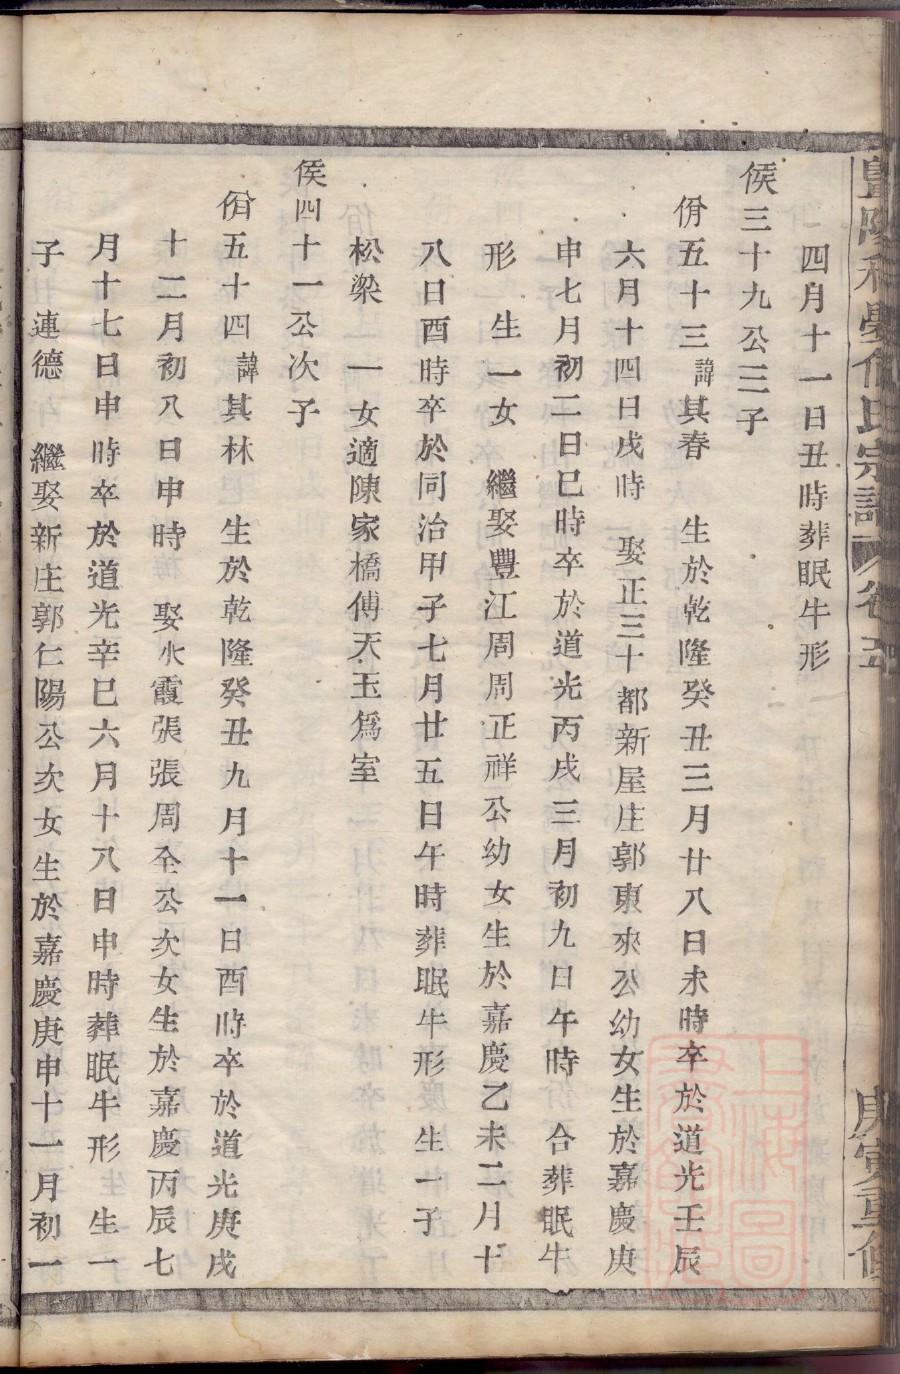 四月十一日丑時葬眠牛形
侯三十九公三子
佾五十三諱其春 生於乾隆癸丑三月廿八日未時卒於道光壬辰
六月十四日戌時 娶正三十都新屋庄郭東來公幼女生於嘉慶庚
申七月初二日巳時卒於道光丙戌三月初九日午時 合葬眠牛
形 生一女 繼娶豐江周周正祥公幼女生於嘉慶乙未二月十
八日酉時卒於同治甲子七月廿五日午時葬眠牛形 生一子
松梁 一女適陳家橋傅天玉爲室
侯四十一公次子
佾五十四諱其林 生於乾隆癸丑九月十一日酉時卒於道光庚戌
十二月初八日申時 娶水霞張張周全公次女生於嘉慶丙辰七
月十七日申時卒於道光辛巳六月十八日申時葬眠牛形 生一
子 連德 繼娶新庄郭仁陽公次女生於嘉慶庚申十一月初一
氏宗譜 卷五 庚寅重修